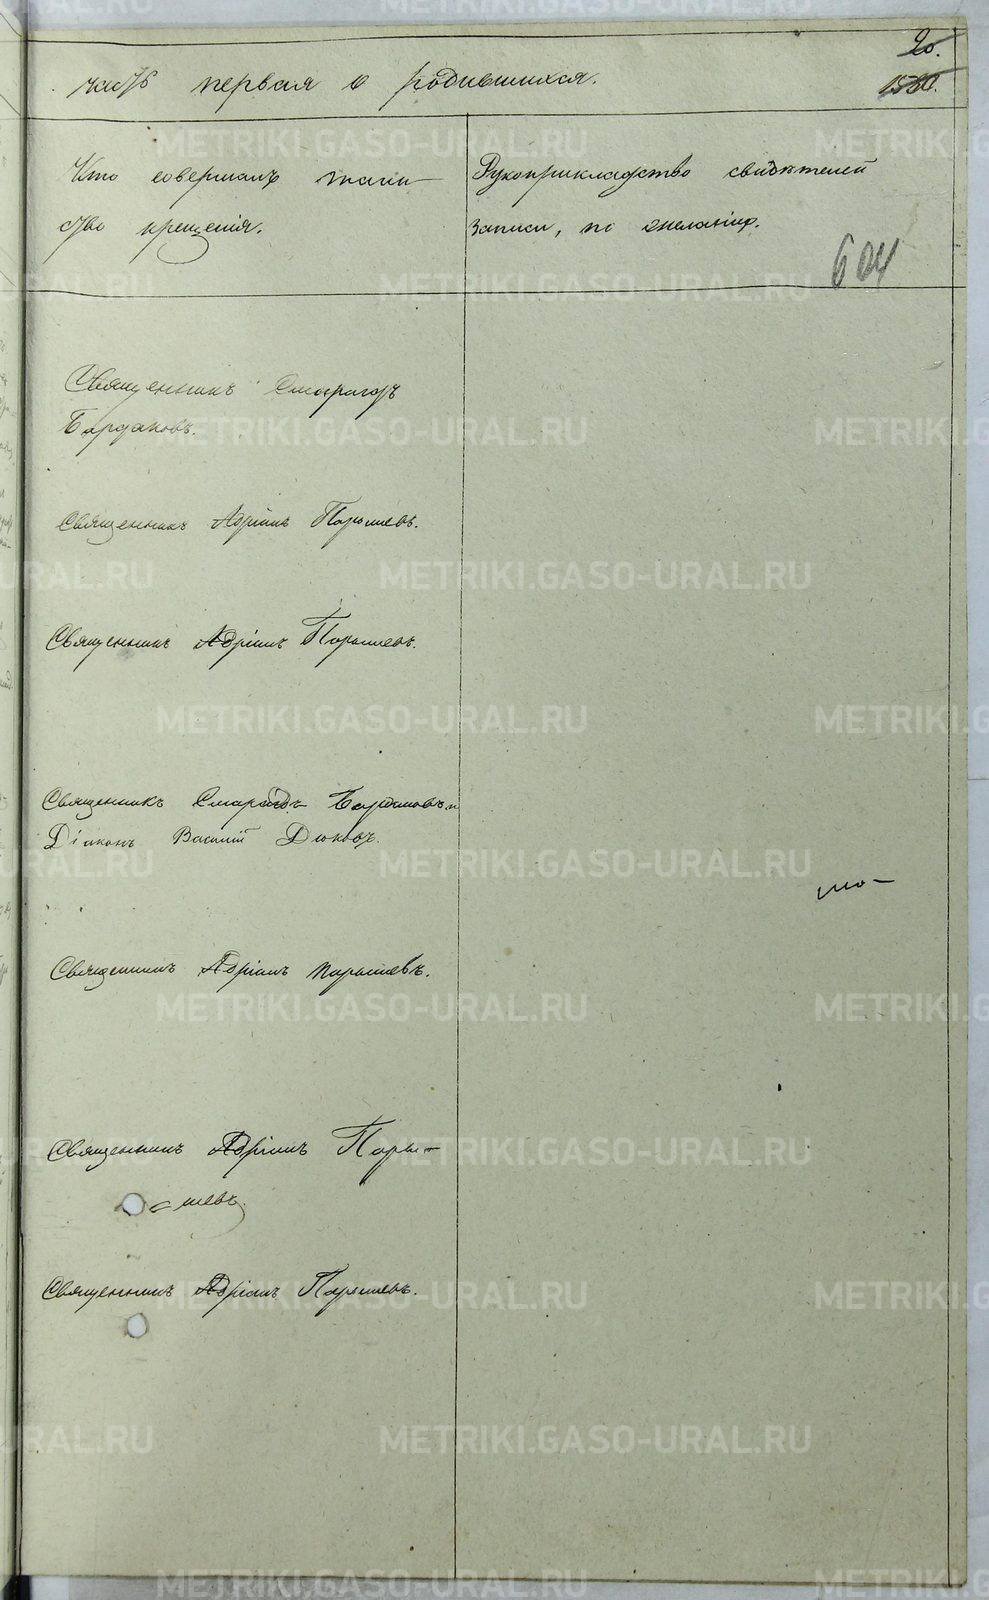 20.
часть первая о родившихся.
1580.
Кто совершалъ таин-
ство крещенія.
Рукоприкладство свидѣтелей
записи, по желанію.
604
Священникъ Смарагдъ
Бардаковъ.
Священникъ Адріанъ Парышевъ.
Священникъ Адріанъ Парышевъ.
Священникъ Смарагдъ Бардаковъ и
Діаконъ Василій Дюковъ.
Священникъ Адріанъ Парышевъ.
Священникъ Адріанъ Пары-
шевъ.
Священникъ Адріанъ Парышевъ.
METRIKI.GASO-URAL.RU